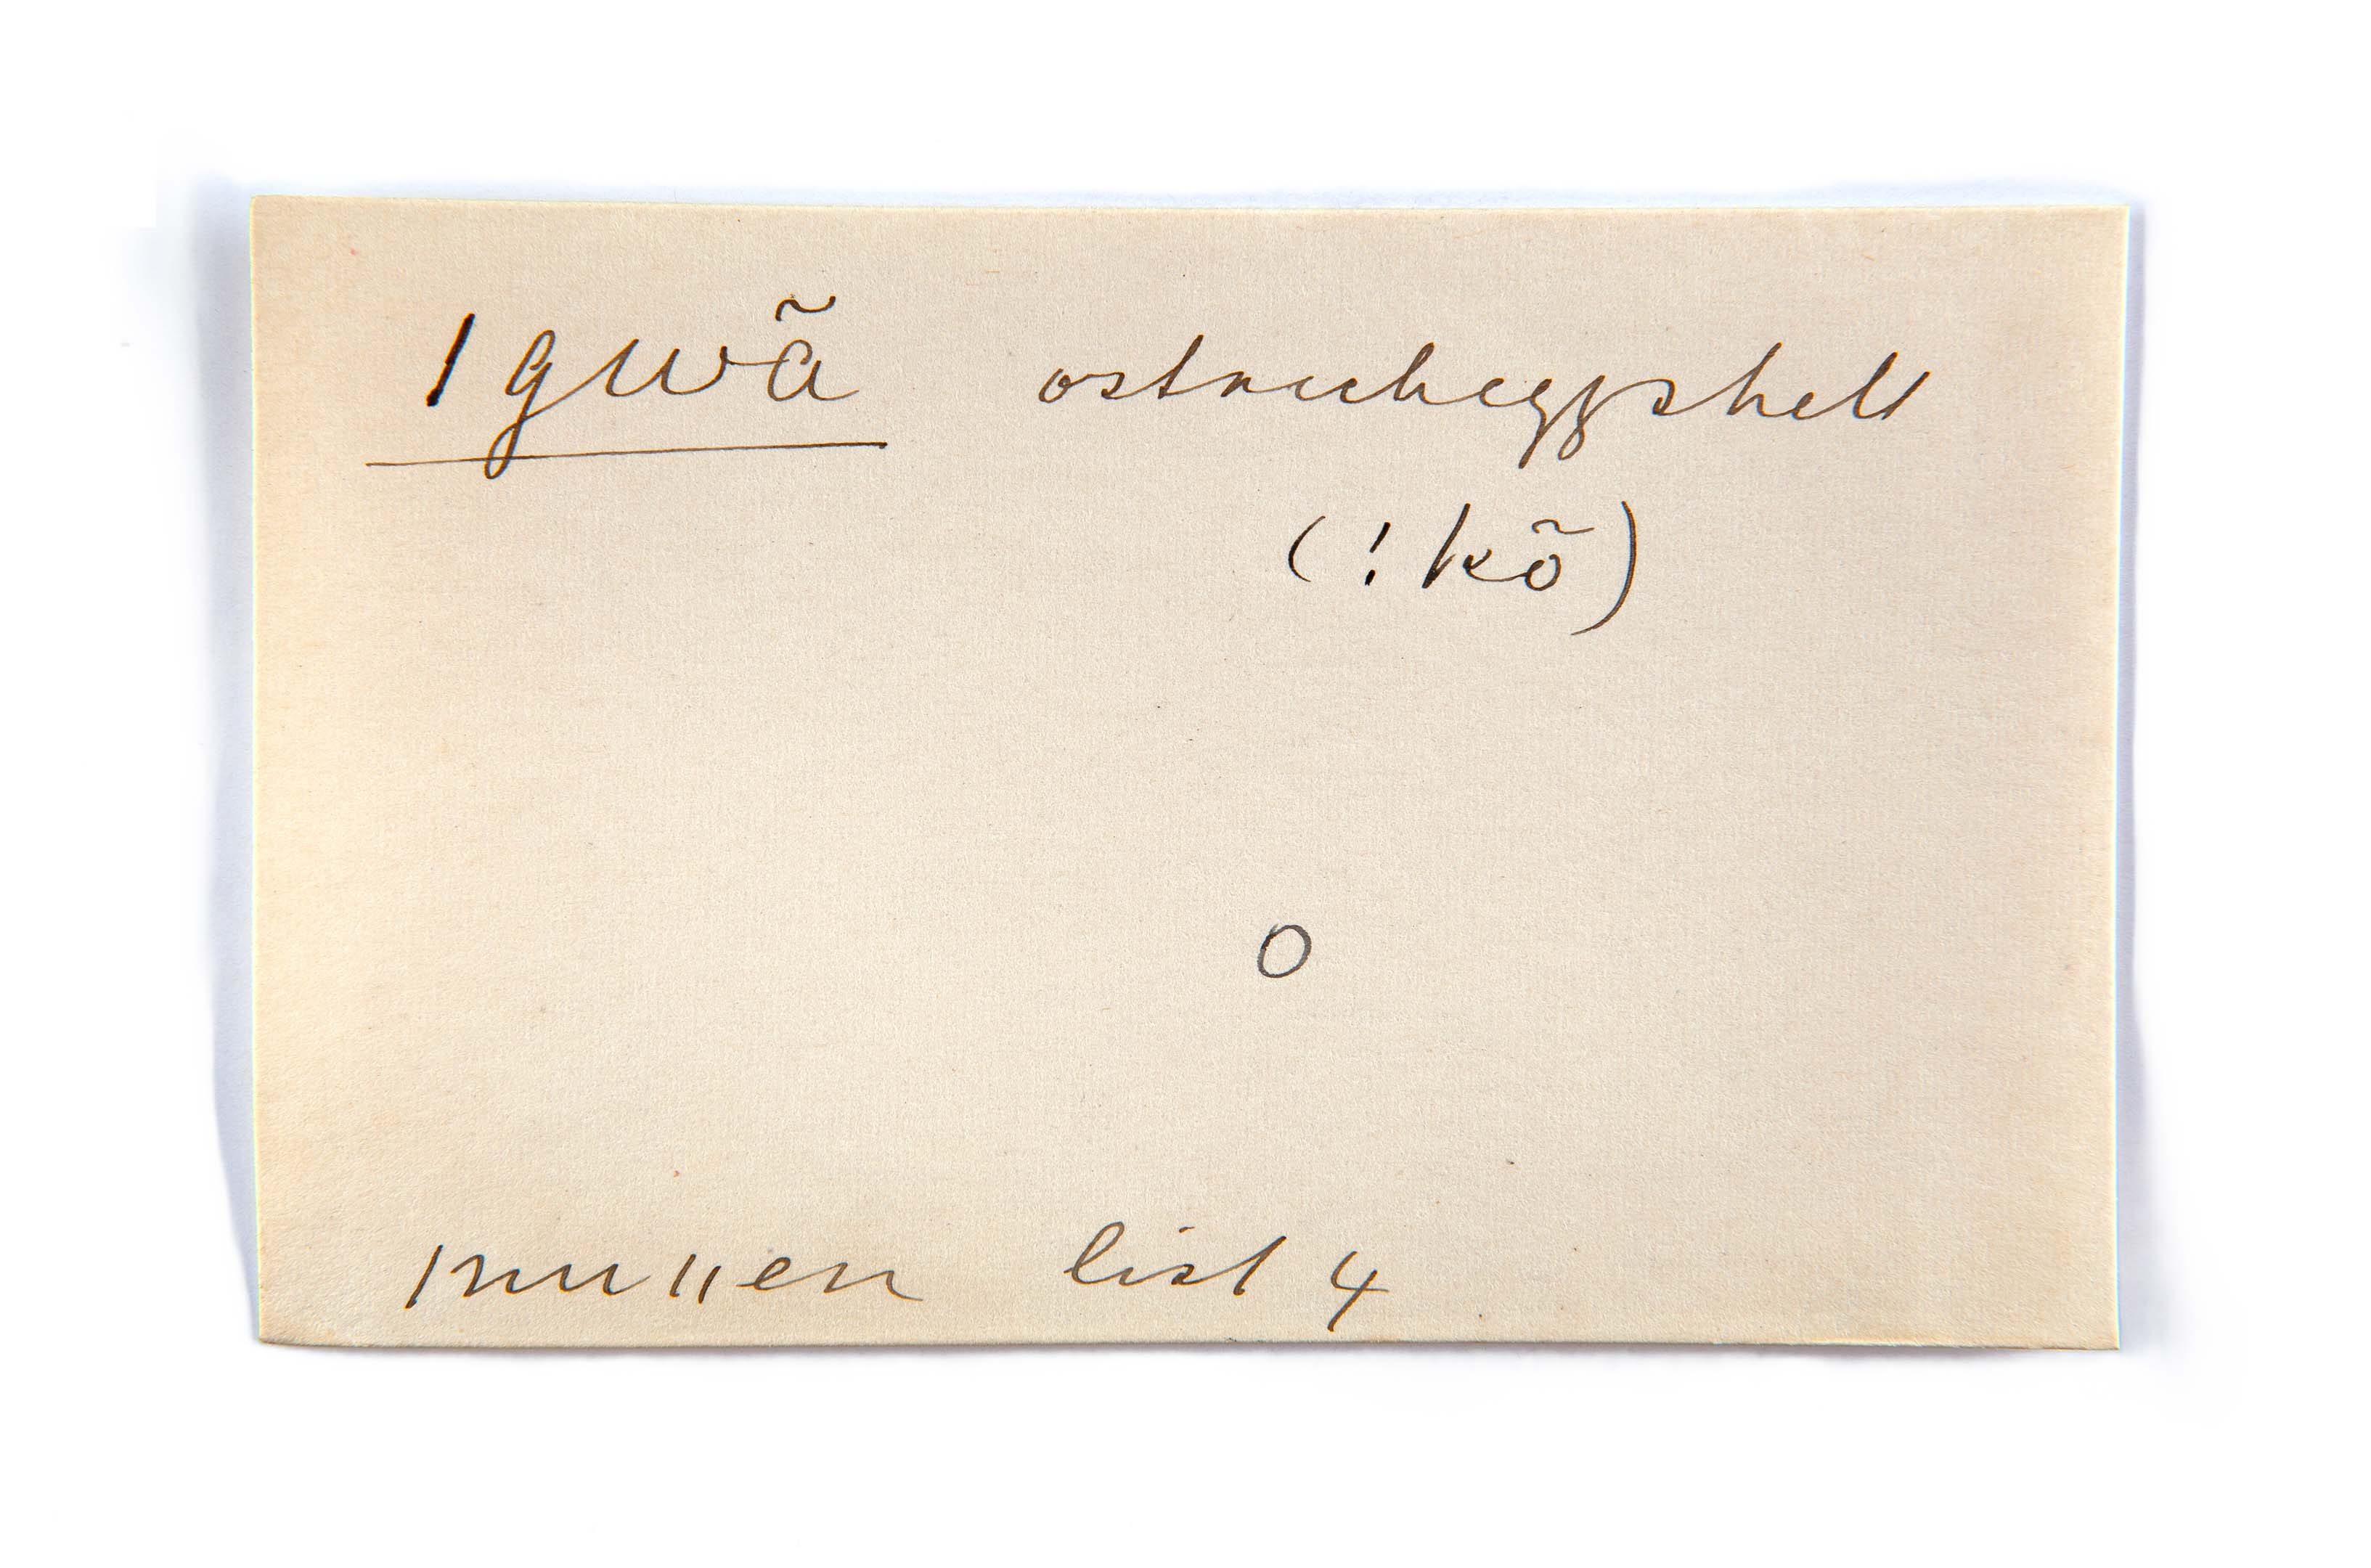 ǀgwã ostricheggshell
(!kõ)
o
ǀnuǁen list 4